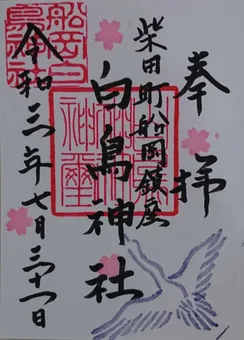 奉拝
柴田町船岡鎮座
白鳥神社
令和三年七月三十一日